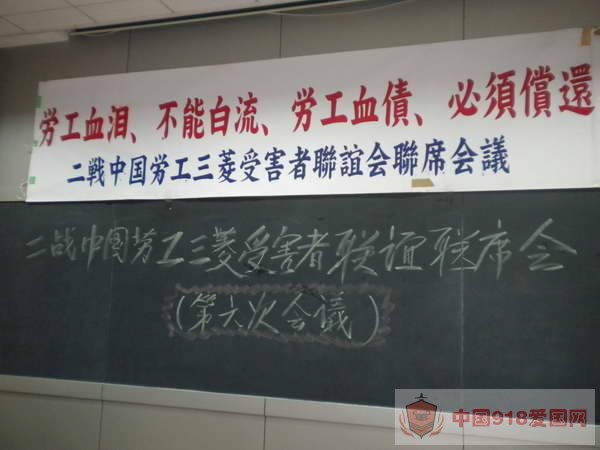 労工血泪、不能白流、労工血債、必須償還
二戦中国労工三菱受害者聯誼会聯席会議
二战中国劳工三菱受害者联谊联席会
(第六次会议)
中国918爱国网